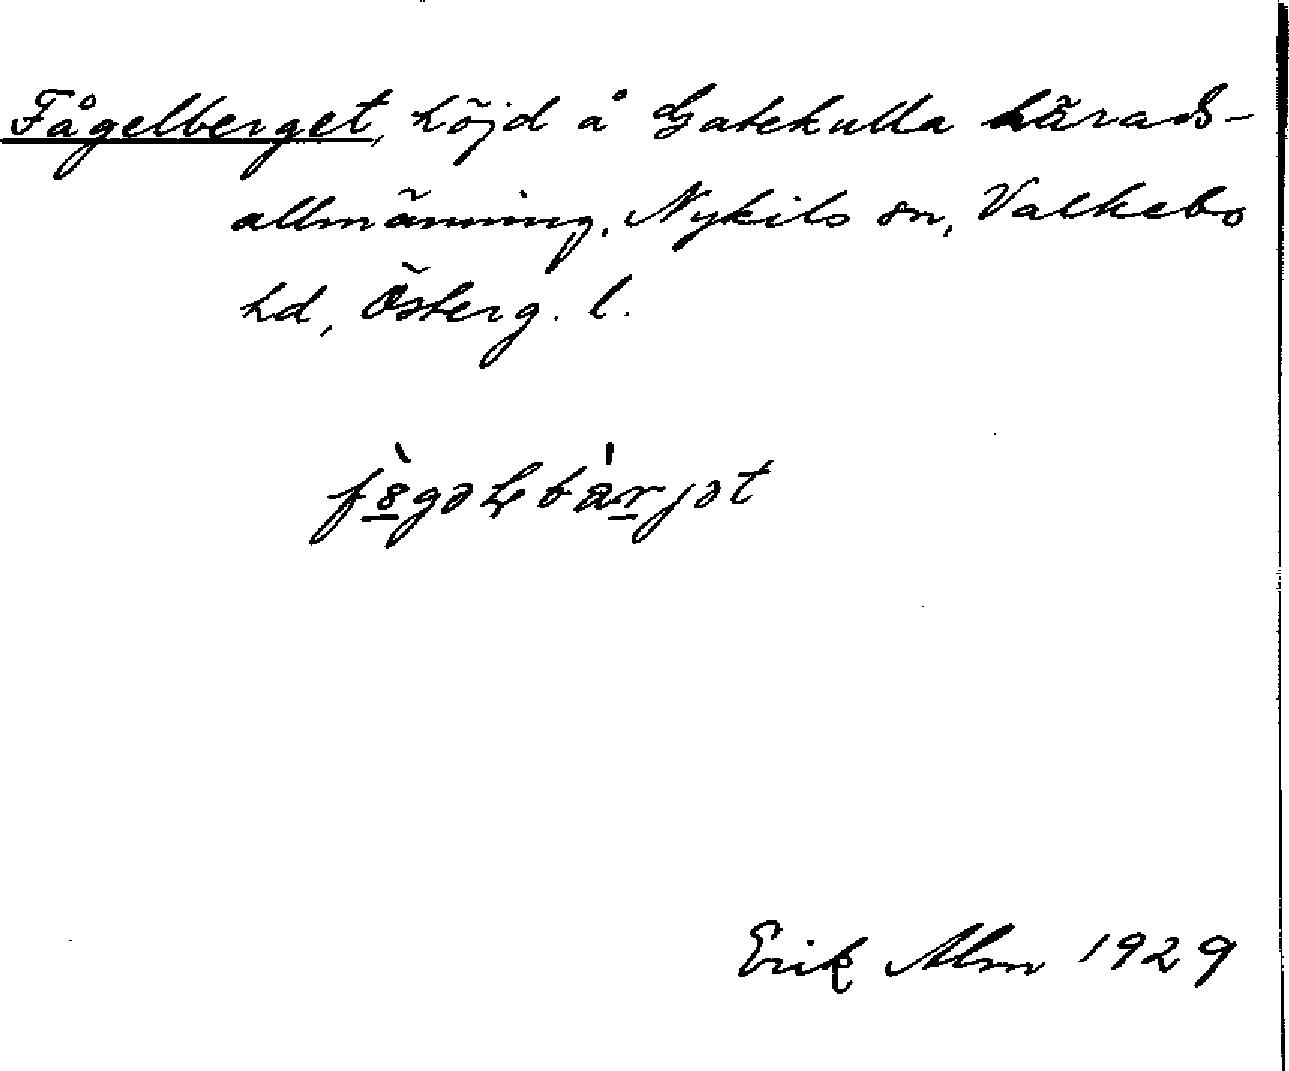 Fågelberget, höjd å Gatekulla härads-
allmänning, Nykils sn, Valkebo
hd, Österg. l.
Erik Alm 1929